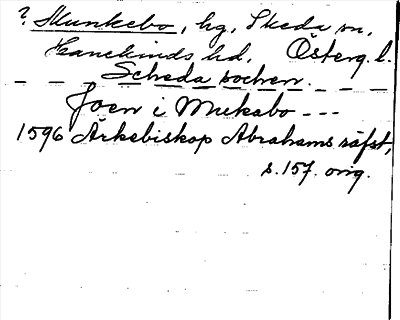 ? Munkebo, hg, Skeda sn,
Hanekinds hd. Österg. l.
Skeda sochen.
Joen i Mukabo ---
1596 Ärkebiskop Abrahams räfst,
s. 157. orig.